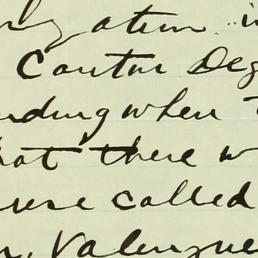 Cantu Deg
nding when t
hat there w
were called
Valenzue